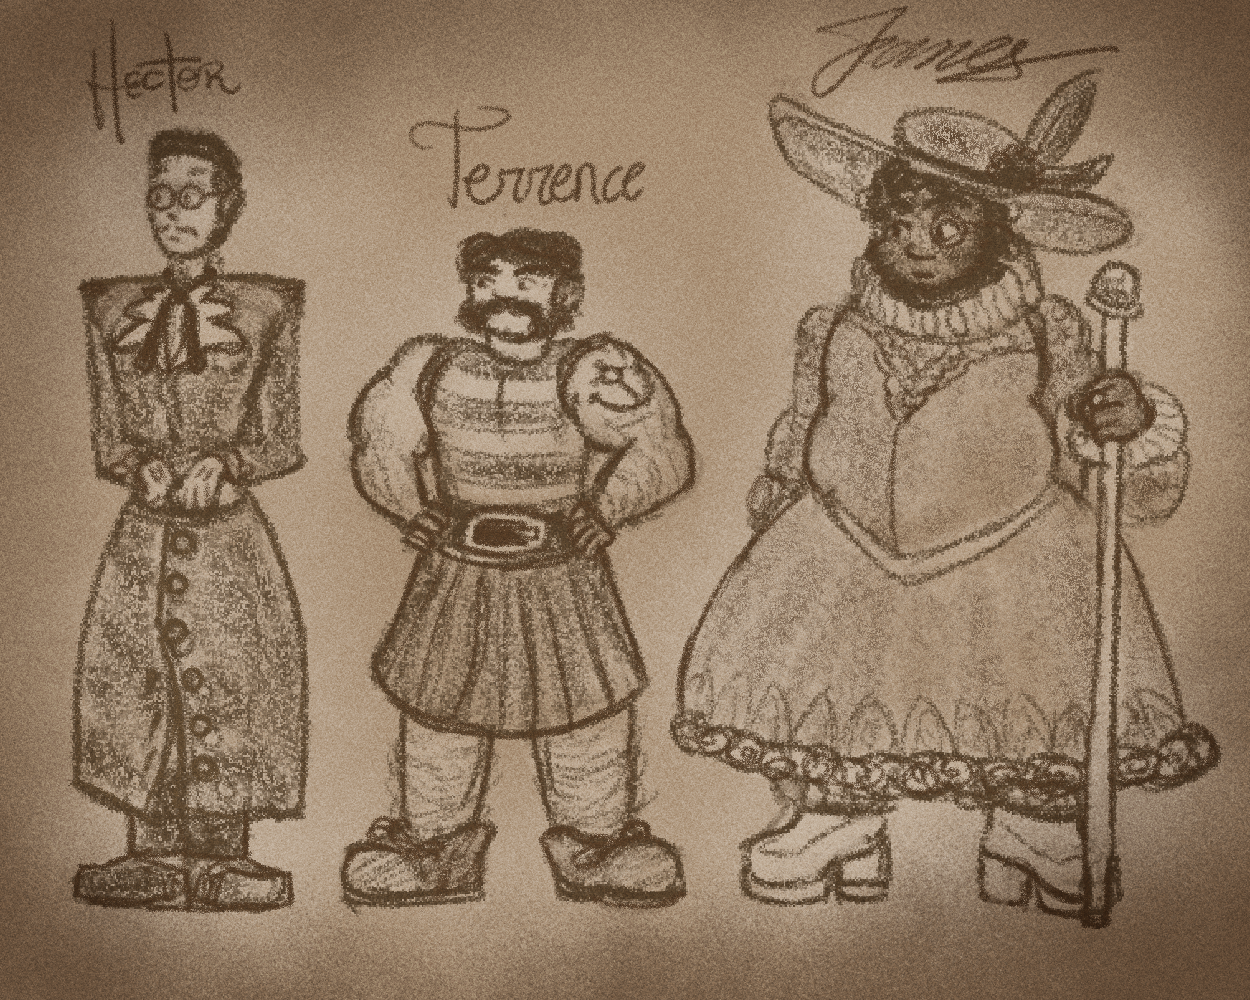 Hector
Terrence
James